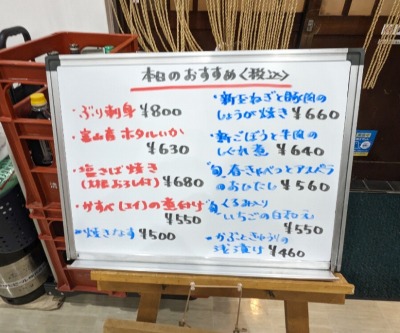 本日のおすすめ〈税込〉
・ぶり刺身 ¥800
・富山産 ホタルいか
¥630
・塩さば焼き
(大根おろし付) ¥680
・かすべ(エイ)の煮付け
¥550
・焼きなす ¥500
・新玉ねぎと豚肉の
しょうが焼き ¥660
・新ごぼうと牛肉の
しぐれ煮 ¥640
旬 春きゃべつとアスパラ
のおひたし ¥560
旬 くるみ入り
いちごの白和え
¥550
・かぶときゅうりの
浅漬け ¥460